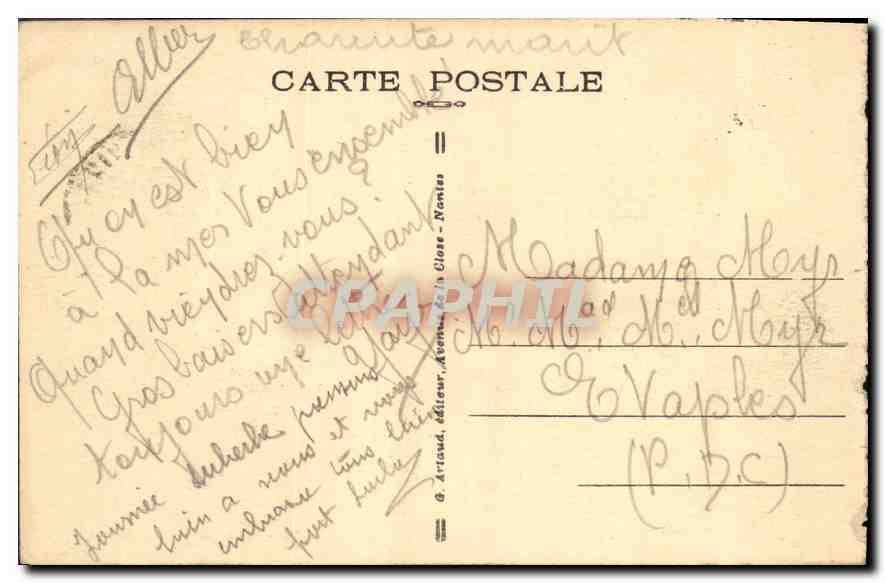 Charente marit
CARTE POSTALE
Alber
Qu'on est bien
à la mer Vous ensemble!
Quand viendrez-vous?
Gros baisers attendant
toujours une
Journée superbe pensons
bien a vous et vous
embrasse tous bien
fort
G. Artaud, éditeur, Avenue de la Close - Nantes
CPAPHIL
Madame Myr
M. Mad, Mel, Myr
Etaples
(P. D. C)